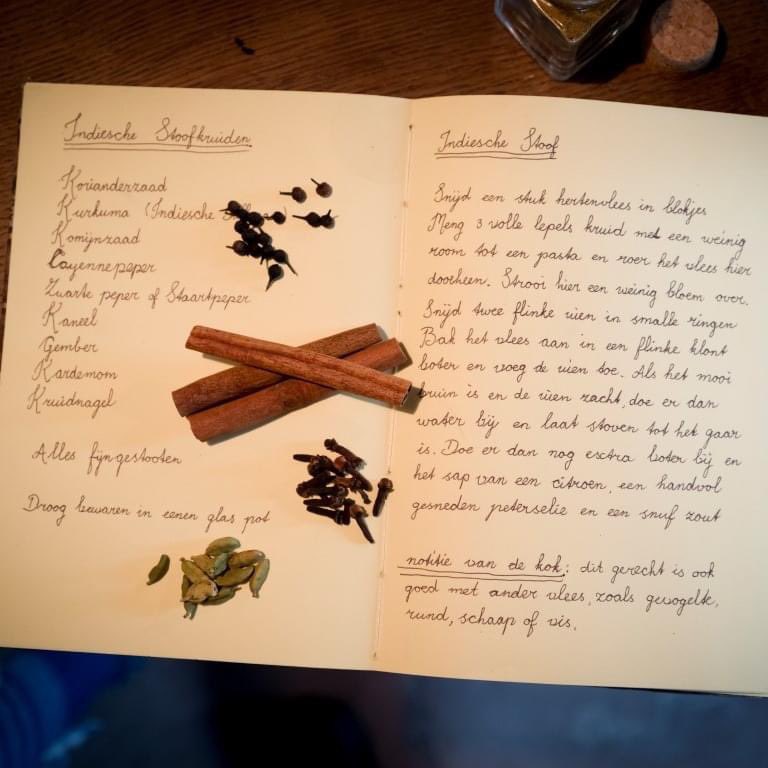 Indiesche Stoofkruiden
Korianderzaad
Kurkuma (Indiesche
Komijnzaad
Cayennepeper
Zwarte peper of Staartpeper
Kaneel
Gember
Kardemom
Kruidnagel
Alles fijn gestooten
Droog bewaren in eenen glas pot
Indiesche Stoof
Snijd een stuk hertenvlees in blokjes
Meng 3 volle lepels kruid met een weinig
room tot een pasta en roer het vlees hier
doorheen. Strooi hier een weinig bloem over.
Snijd twee flinke uien in smalle ringen
Bak het vlees aan in een flinke klont
boter en voeg de uien toe. Als het mooi
bruin is en de uien zacht, doe er dan
water bij en laat stoven tot het gaar
is. Doe er dan nog esctra boter bij en
het sap van een citroen, een handvol
gesneden peterselie en een snuf zout
notitie van de kok: dit gerecht is ook
goed met ander vlees, zoals gevogelte,
rund, schaap of vis.